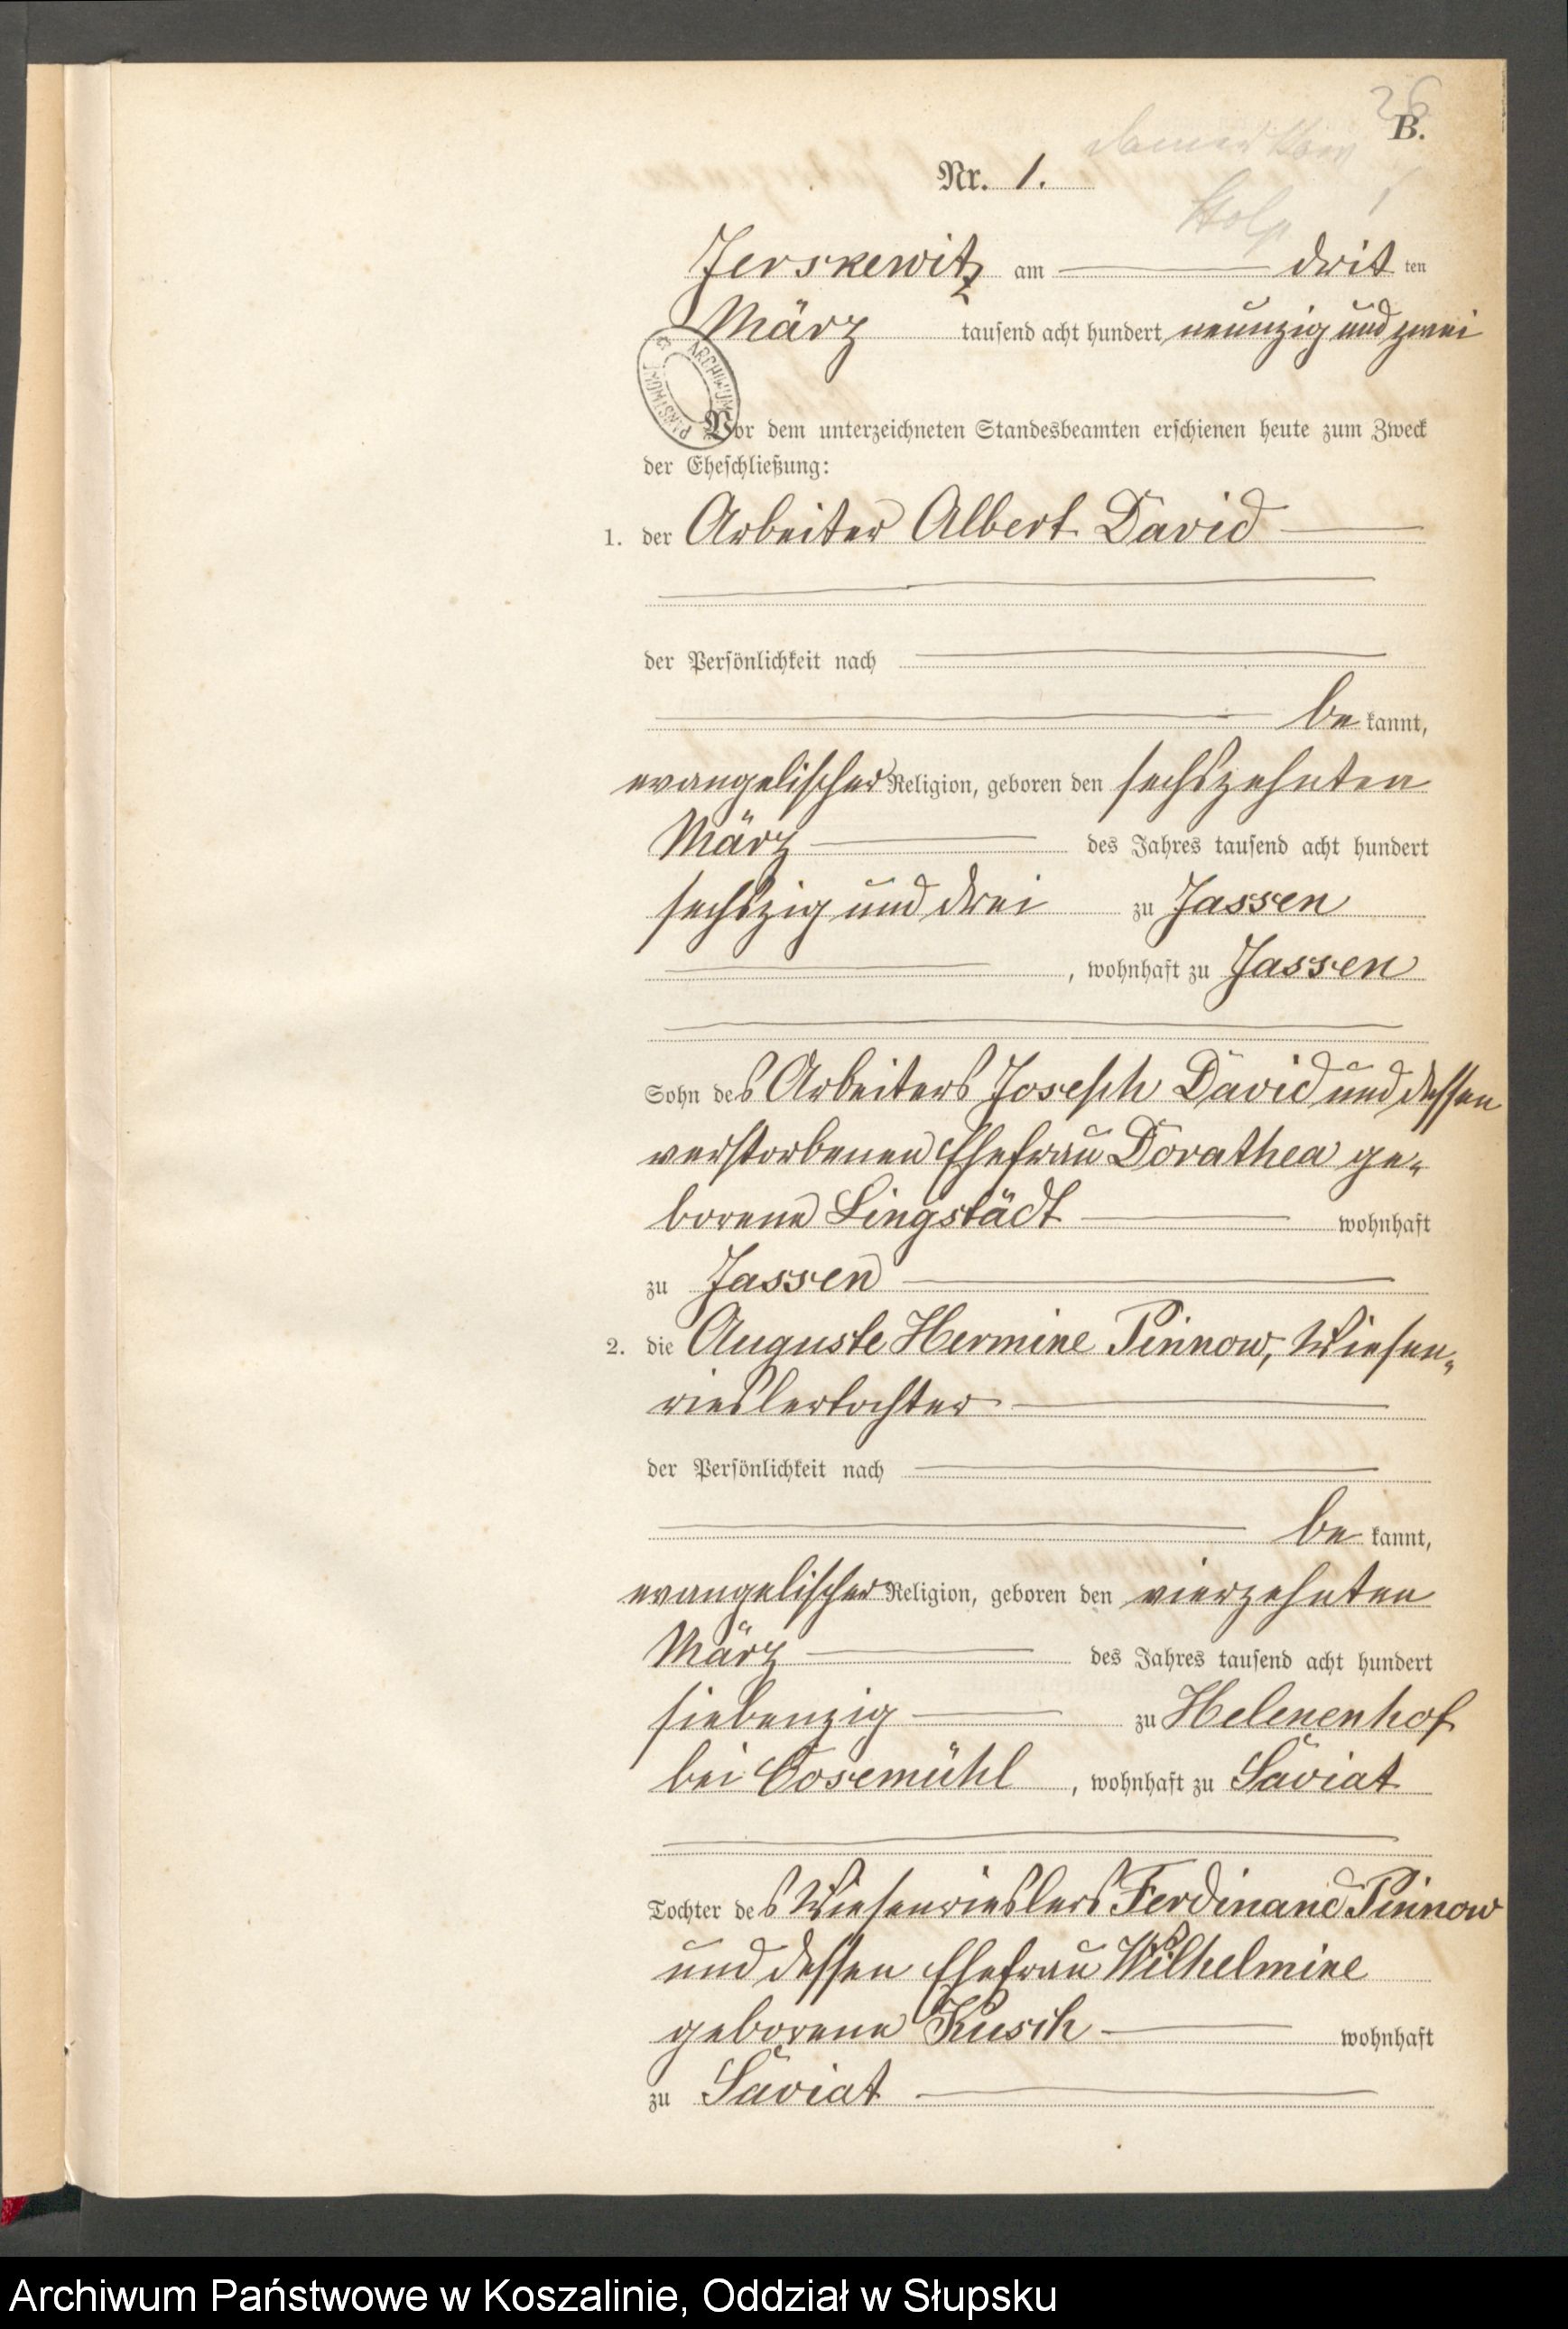 26
B.
Nr. 1.
Stolp
Jerskewitz am dritten
März tausend acht hundert neunzig und zwei
ARCHIWUM PAŃSTWOWE
Vor dem unterzeichneten Standesbeamten erschienen heute zum Zweck
der Eheschließung:
1. der Arbeiter Albert David
der Persönlichkeit nach
bekannt,
evangelischer Religion, geboren den sechszehnten
März des Jahres tausend acht hundert
sechszig und drei zu Jassen
, wohnhaft zu Jassen
Sohn des Arbeiters Joseph David und dessen
verstorbenen Ehefrau Dorathea ge-
borene Lingstädt wohnhaft
zu Jassen
2. die Auguste Hermine Pinnow, Wiesen-
rieslertochter
der Persönlichkeit nach
bekannt,
evangelischer Religion, geboren den vierzehnten
März des Jahres tausend acht hundert
siebenzig zu Helenenhof
bei Cosemühl, wohnhaft zu Saviat
Tochter des Wiesenrieslers Ferdinand Pinnow
und dessen Ehefrau Wilhelmine
geborene Kusch wohnhaft
zu Saviat
Archiwum Państwowe w Koszalinie, Oddział w Słupsku